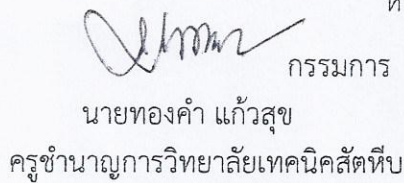 กรรมการ
นายทองคำ แก้วสุข
ครูชำนาญการวิทยาลัยเทคนิคสัตหีบ